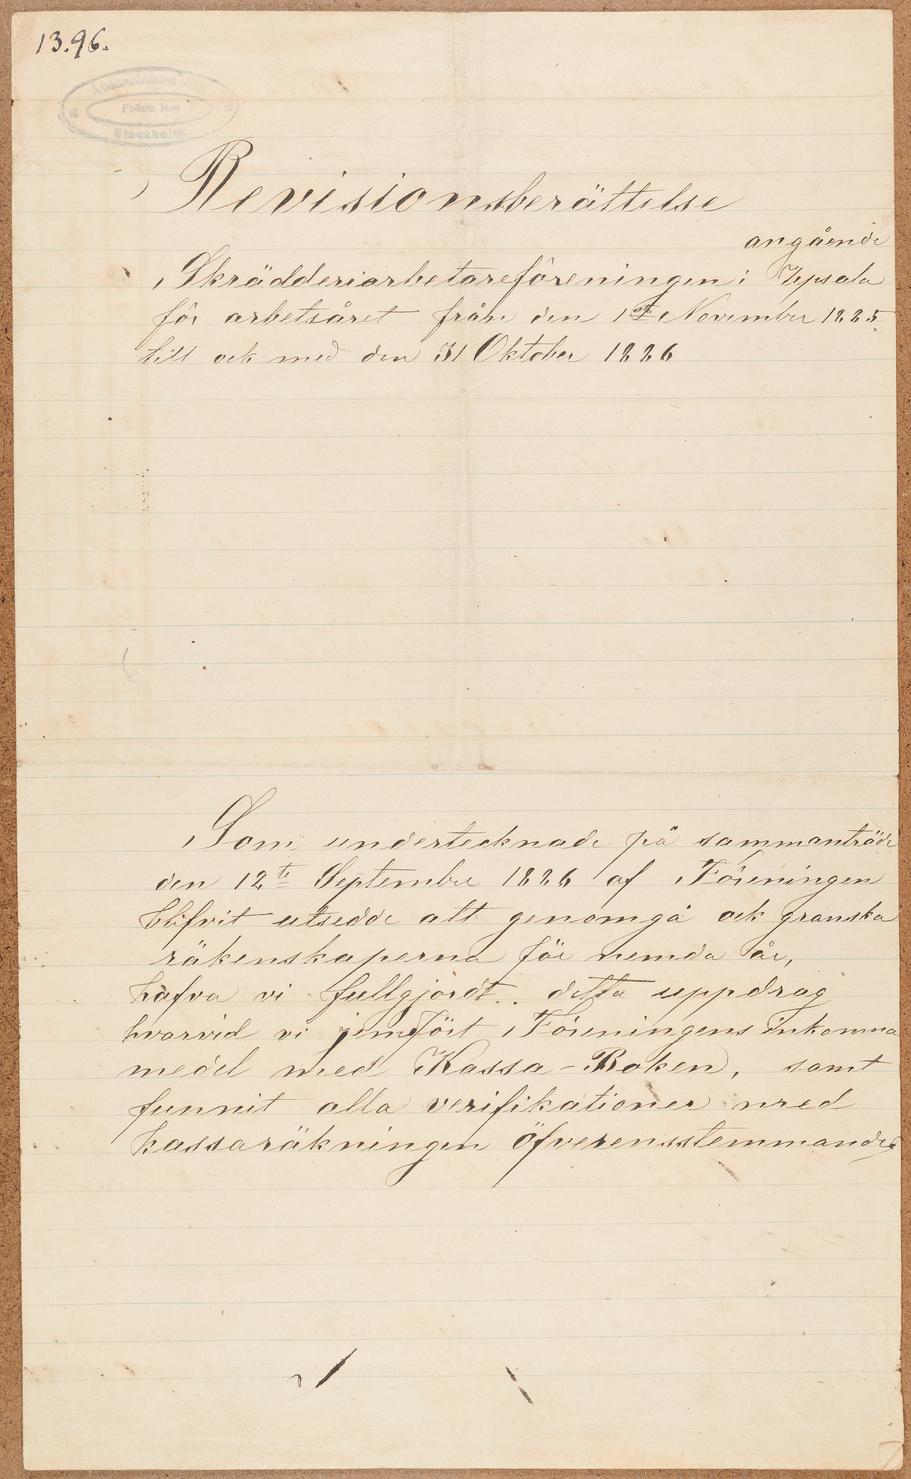 13.96.
Stockholm
Revisionsberättelse
angående
Skrädderiarbetareföreningen i Upsala
för arbetsåret från den 1st November 1885
till ock med den 31 Oktober 1886
Som undertecknade på sammanträde
den 12te September 1886 af Föreningen
blifvit utsedde att genomgå ock granska
räkenskaperna för nemda år,
hafva vi fullgjordt.. detta uppdrag
hvarvid vi jemfört Föreningens inkomna
medel med Kassa-Boken, samt
funnit alla verifikationer med
kassaräkningen öfverensstemmande